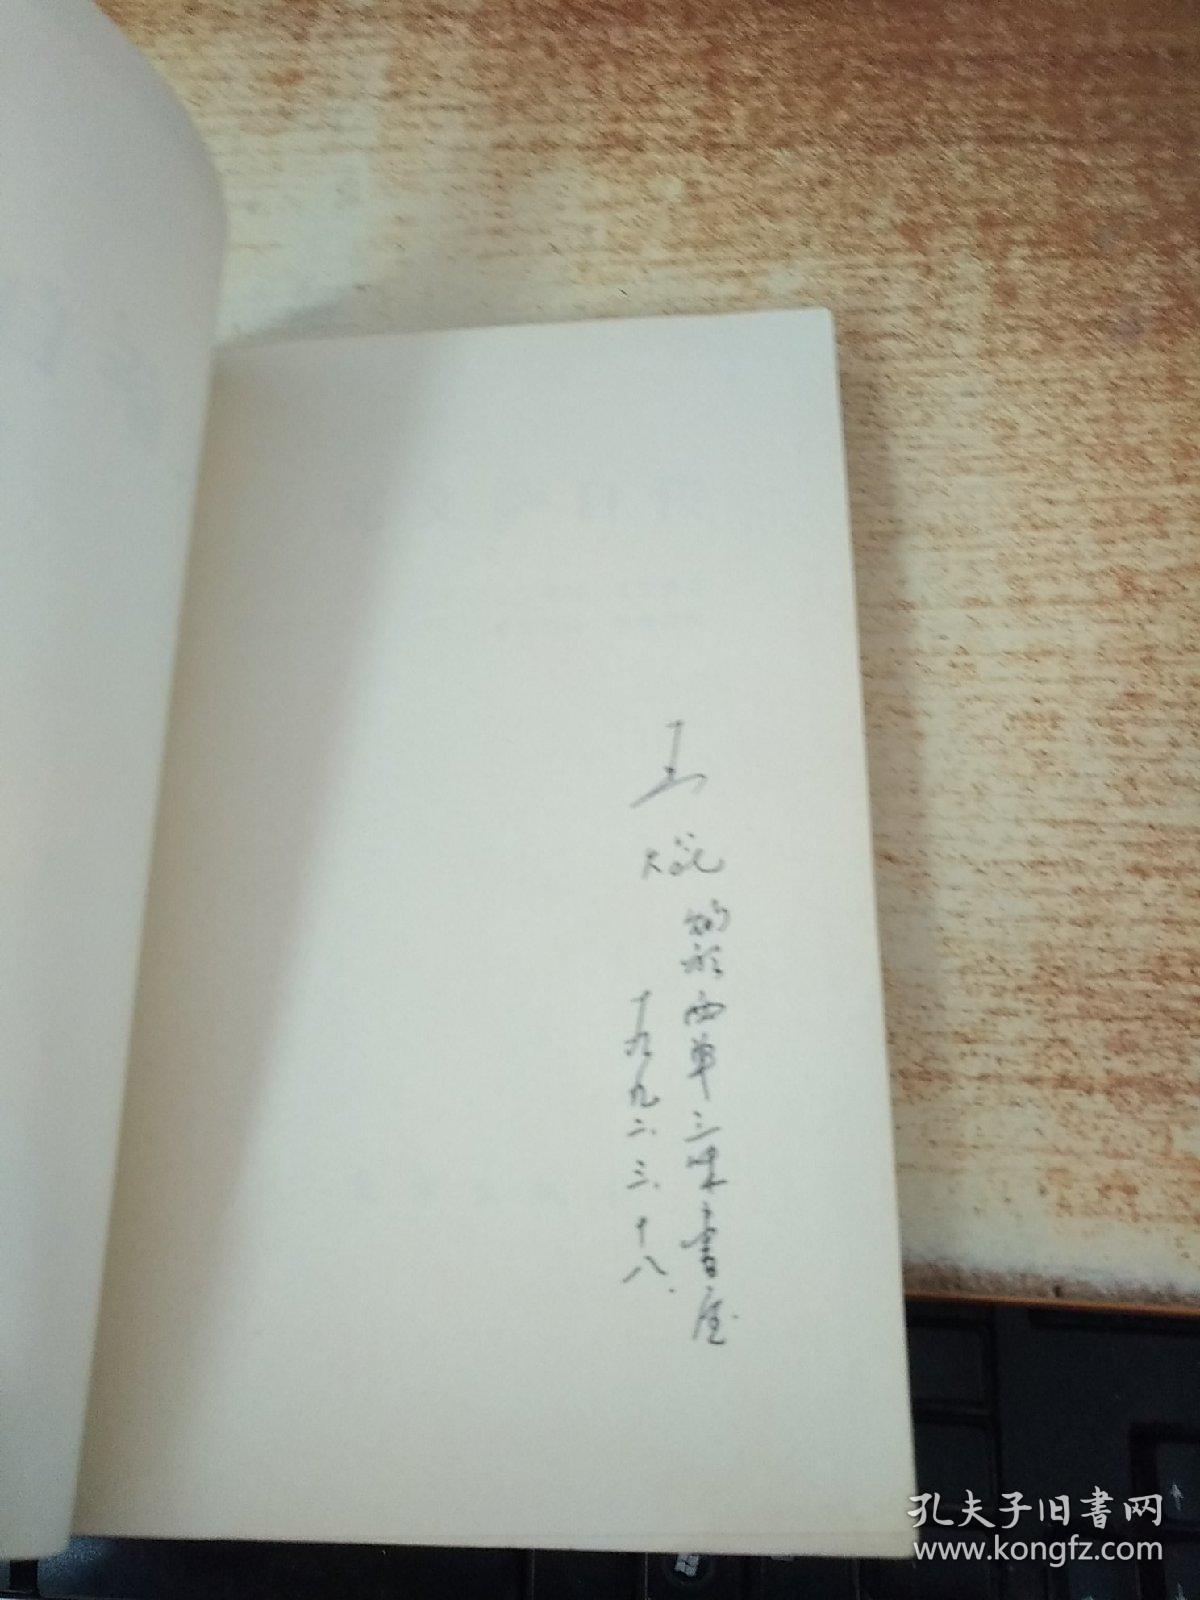 王
购于西单三味书屋
一九九二.三.十八.
孔夫子旧書网
www.kongfz.com